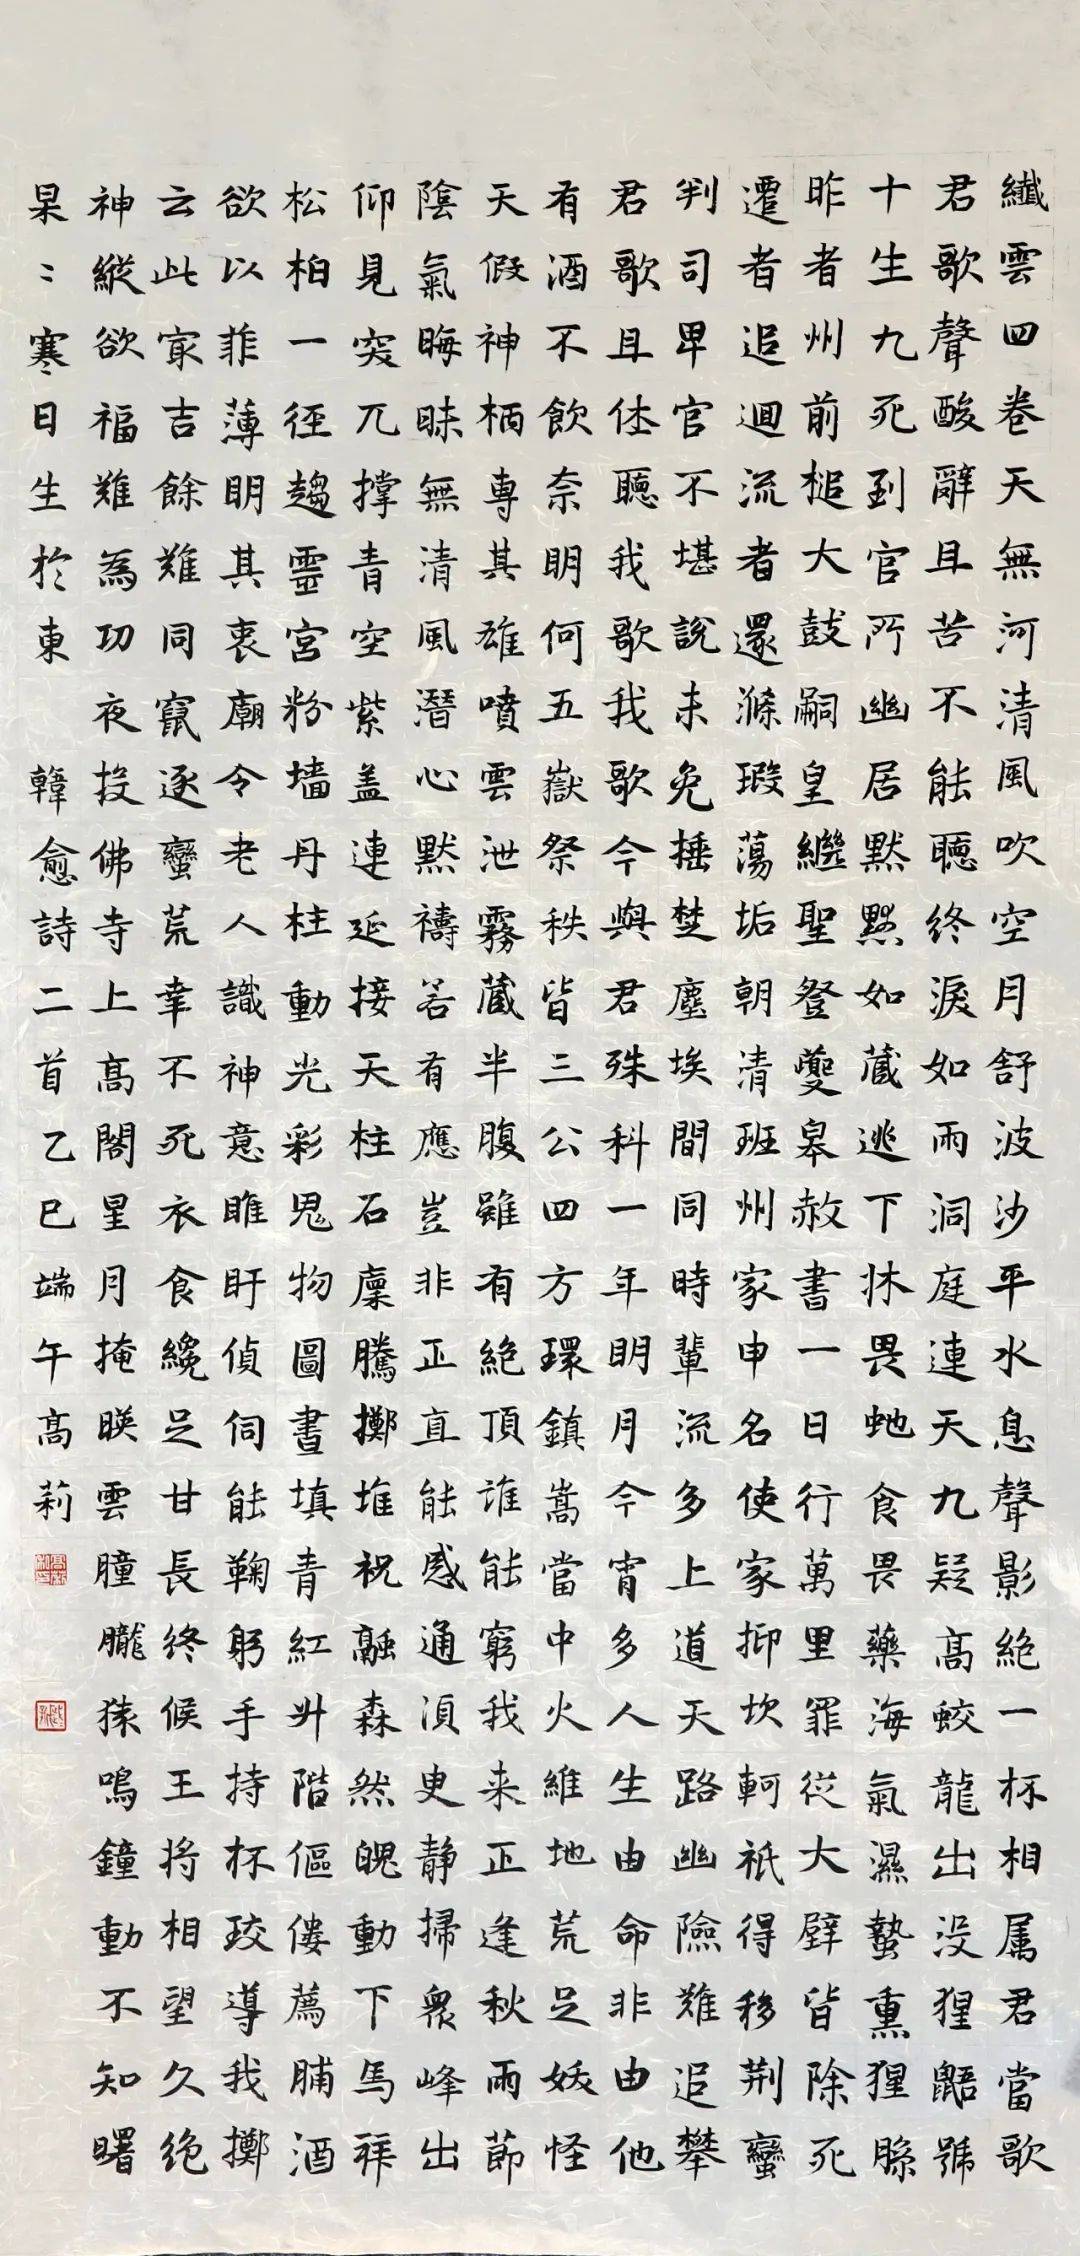 纖雲四卷天無河清風吹空月舒波沙平水息聲影絕一杯相属君當歌
君歌聲酸辭且苦不能聽終淚如雨洞庭連天九疑高蛟龍出没猩鼯號
十生九死到官所幽居默默如藏逃下牀畏虵食畏藥海氣濕蟄熏猩臊
昨者州前槌大鼓嗣皇繼聖登夔皋赦書一日行萬里罪從大辟皆除死
遷者追迴流者還滌瑕蕩垢朝清班州家申名使家抑坎軻祇得移荆蠻
判司卑官不堪說未免捶楚塵埃間同時輩流多上道天路幽險難追攀
君歌且休聽我歌我歌今與君殊科一年明月今宵多人生由命非由他
有酒不飲奈明何五嶽祭秩皆三公四方環鎮嵩當中火維地荒足妖怪
天假神柄專其雄噴雲泄霧藏半腹雖有絕頂誰能窮我来正逢秋雨節
陰氣晦昧無清風潛心默禱若有應豈非正直能感通須臾静掃衆峰出
仰見突兀撑青空紫盖連延接天柱石廩騰擲堆祝融森然魄動下馬拜
松柏一徑趨靈宮粉墻丹柱動光彩鬼物圖畫填青紅升階傴僂薦脯酒
欲以菲薄明其衷廟令老人識神意睢盱偵伺能鞠躬手持杯珓導我擲
云此最吉餘難同竄逐蠻荒幸不死衣食纔足甘長終候王將相望久絕
神縱欲福難為功夜投佛寺上高閣星月掩暎雲朣朧猿鳴鐘動不知曙
杲〻寒日生於東 韓愈詩二首乙巳端午高莉